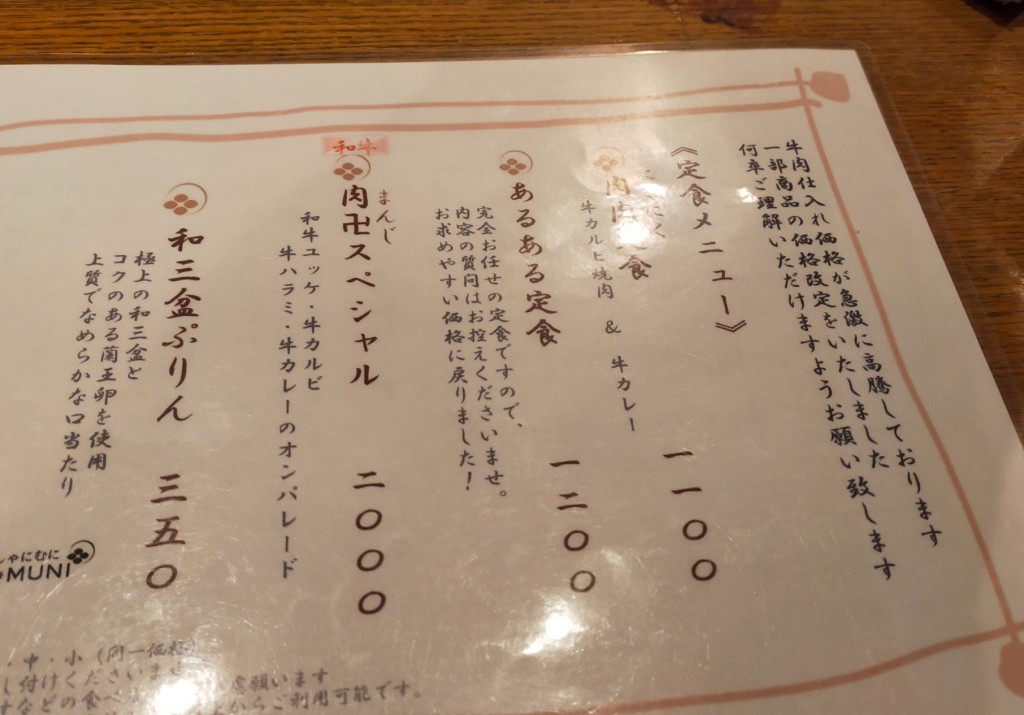 牛肉仕入れ価格が急激に高騰しております
一部商品の価格改定をいたしました
何卒ご理解いただけますようお願い致します
《定食メニュー》
肉肉 食 一一〇〇
牛カルビ焼肉 & 牛カレー
あるある定食 一二〇〇
完全お任せの定食ですので、
内容の質問はお控えくださいませ。
お求めやすい価格に戻りました！
和牛
まんじ
肉卍スペシャル 二〇〇〇
和牛ユッケ・牛カルビ
牛ハラミ・牛カレーのオンパレード
和三盆ぷりん 三五〇
極上の和三盆と
コクのある蘭王卵を使用
上質でなめらかな口当たり
ゃにむに
MUNI
・中・小（同一価格）
し付けくださいませ
すなどの食べ 願います
らご利用可能です。